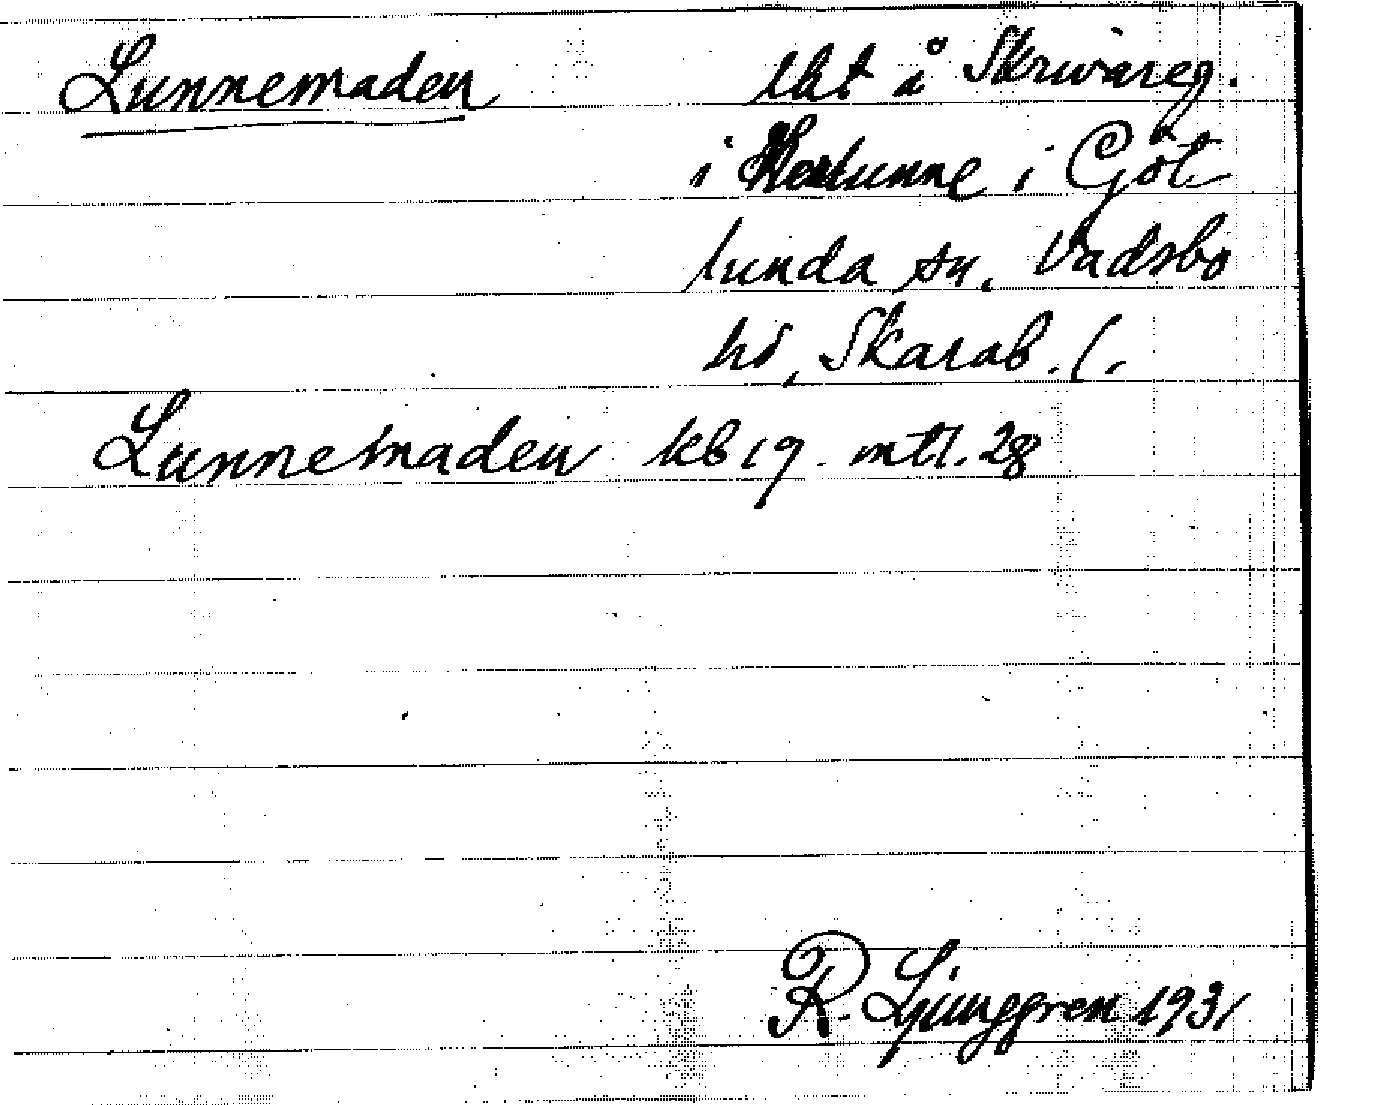 Lunnemaden lht å Skrivareg.
i i Göt
lunda sn. Vadsbo
hd, Skarab. l.
Lunnemaden kb 19. mtl. 28
R. Ljunggren 1931